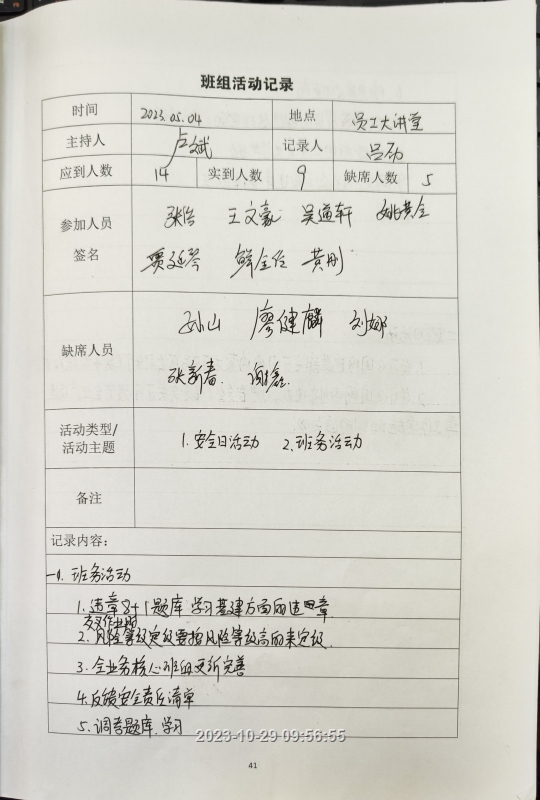 班组活动记录
时间 2023.05.04 地点 员工大讲堂
主持人 卢斌 记录人 吕劲
应到人数 14 实到人数 9 缺席人数 5
参加人员 张浩 王文豪 吴道轩
签名 贾延琴 鲜全位 黄刚
缺席人员 孙山 廖健麟 刘娜
张新春
活动类型/
活动主题 1.安全日活动 2.班务活动
备注
记录内容:
一、班务活动
1.违章8+1题库 学习基建方面的违章
交叉作业时
2.风险等级定级要按风险等级高的来定级
3.全业务核心班组更新完善
4.反馈安全责任清单
5.调考题库.学习
2023-10-29 09:56:55
41